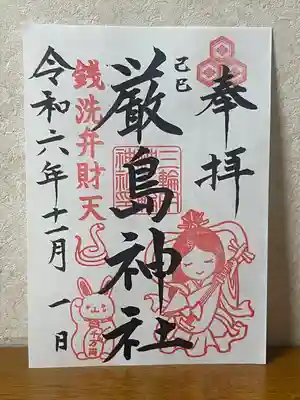 奉拝
己巳
厳島神社
銭洗弁財天
令和六年十一月一日